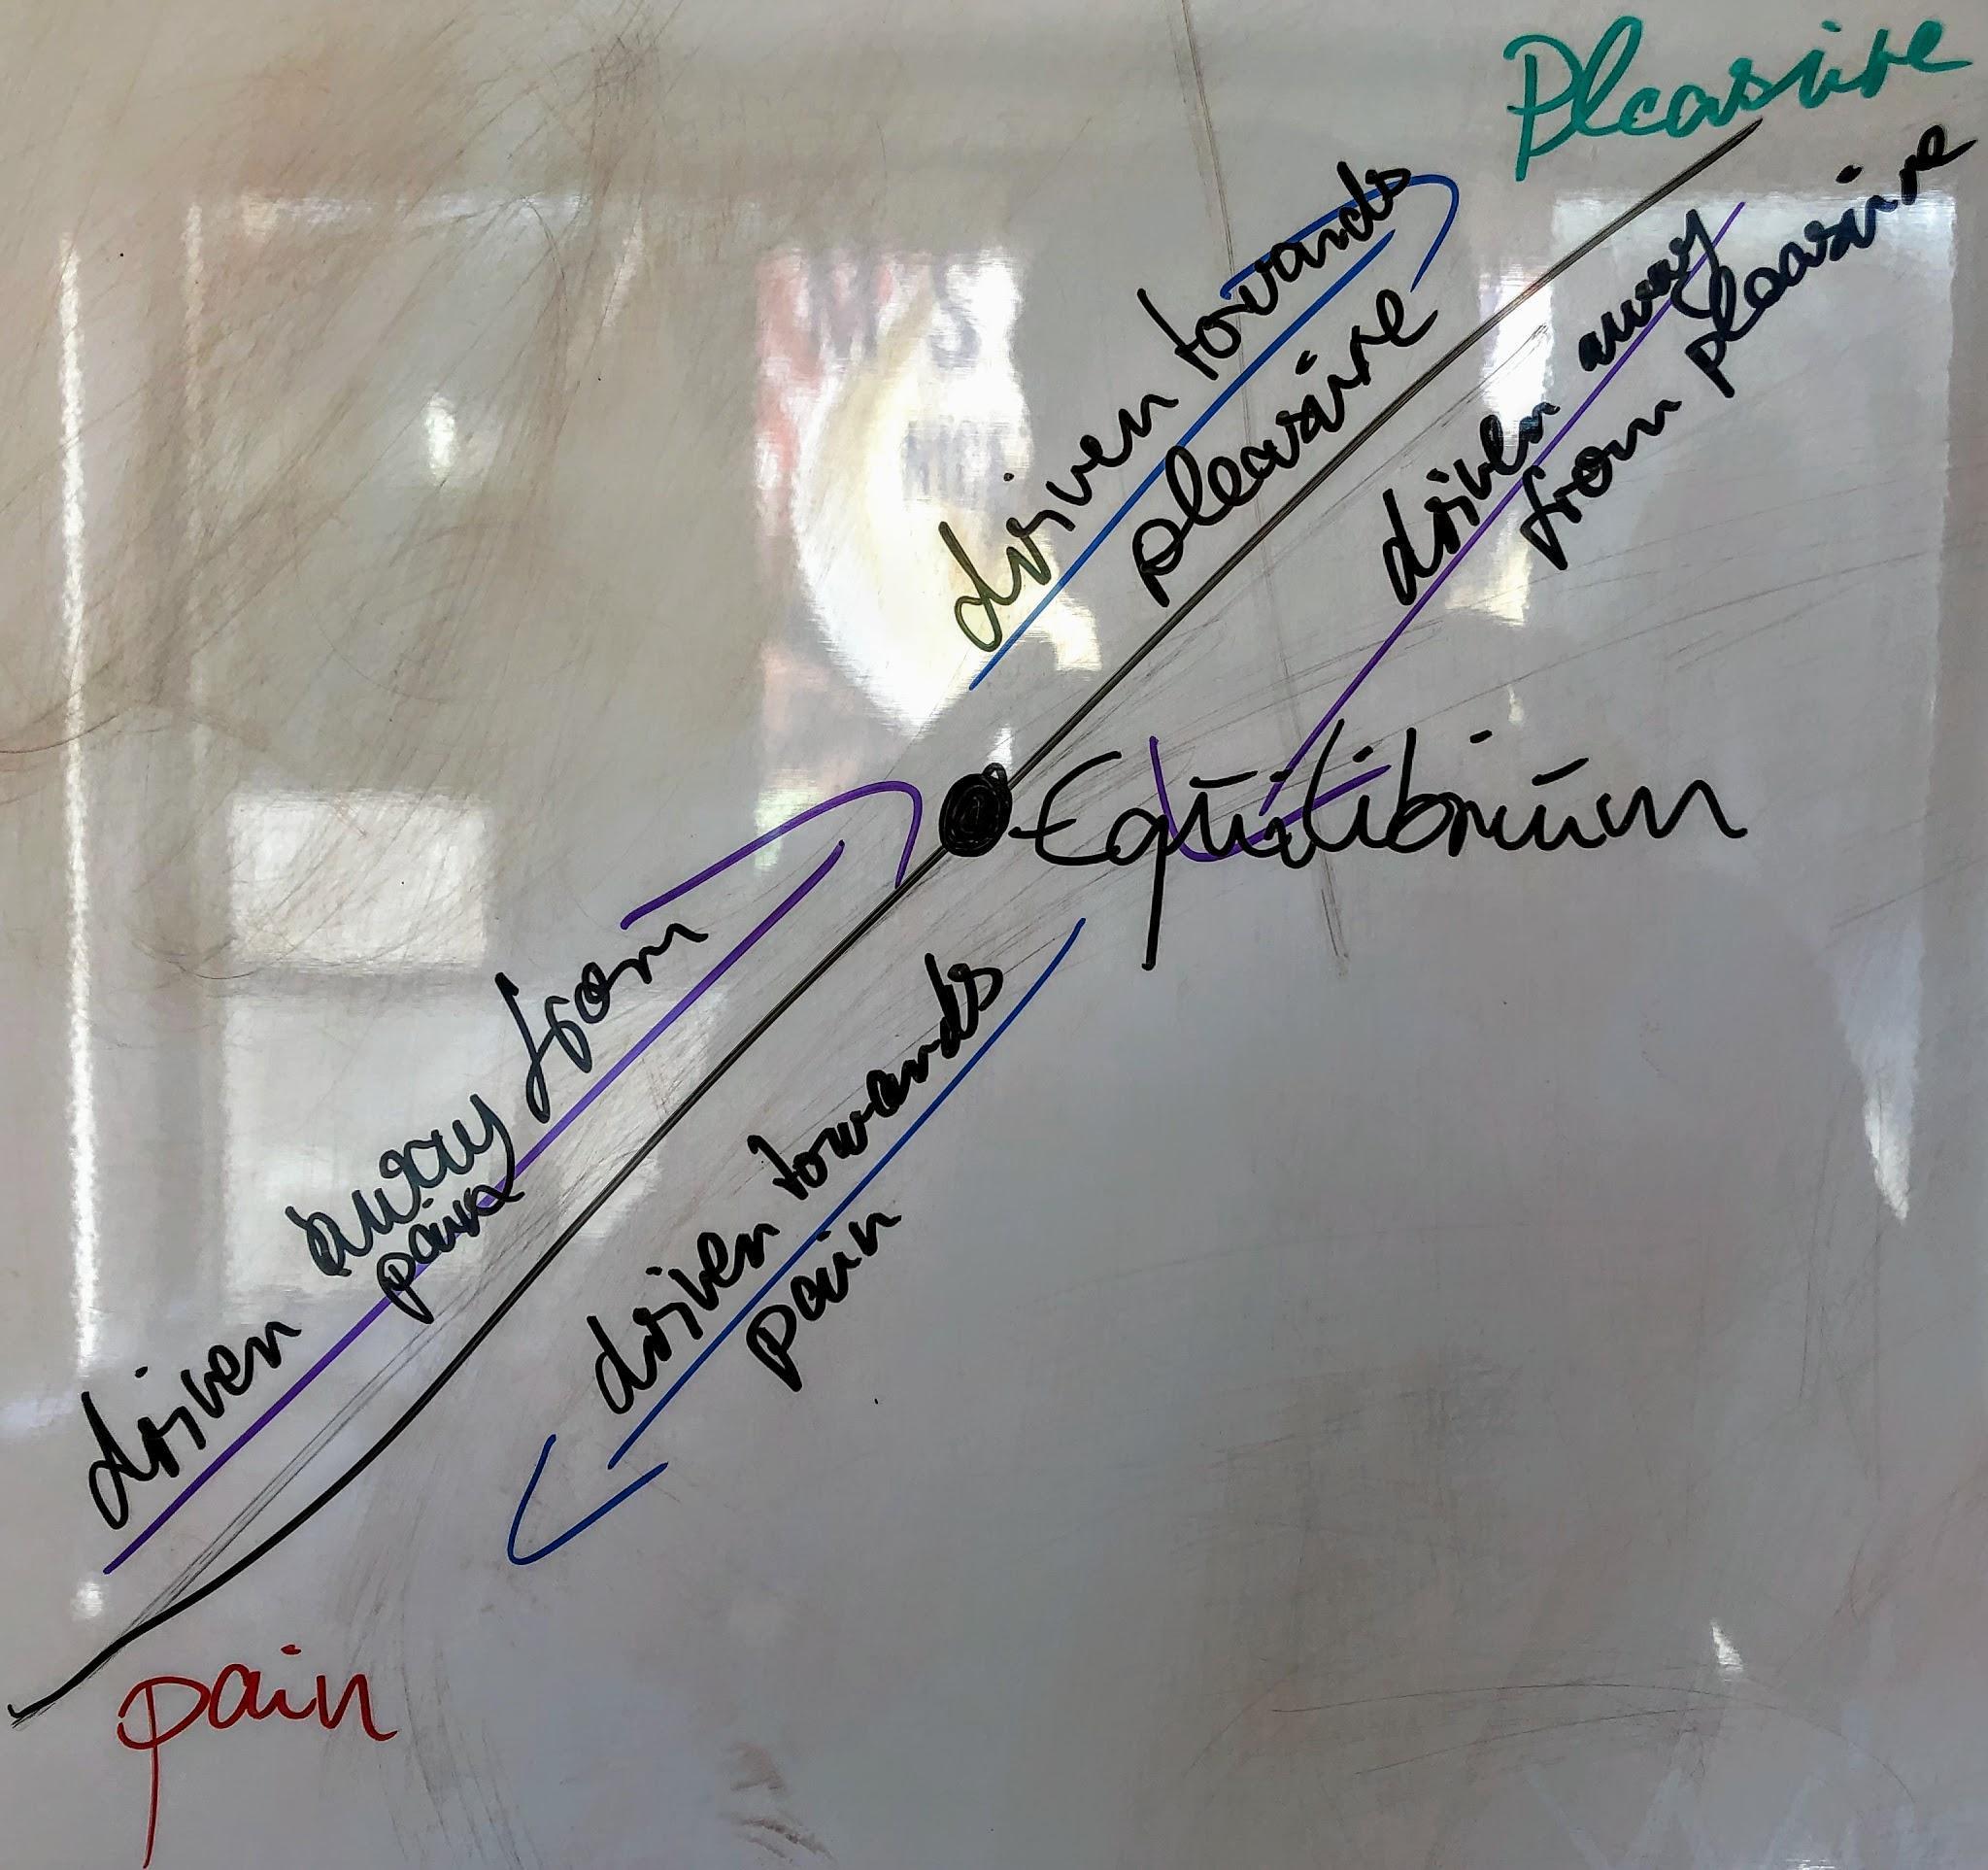 Pleasure
driven towards
pleasure
driven away
from pleasure
Equilibrium
driven away from
pain
driven towards
pain
pain